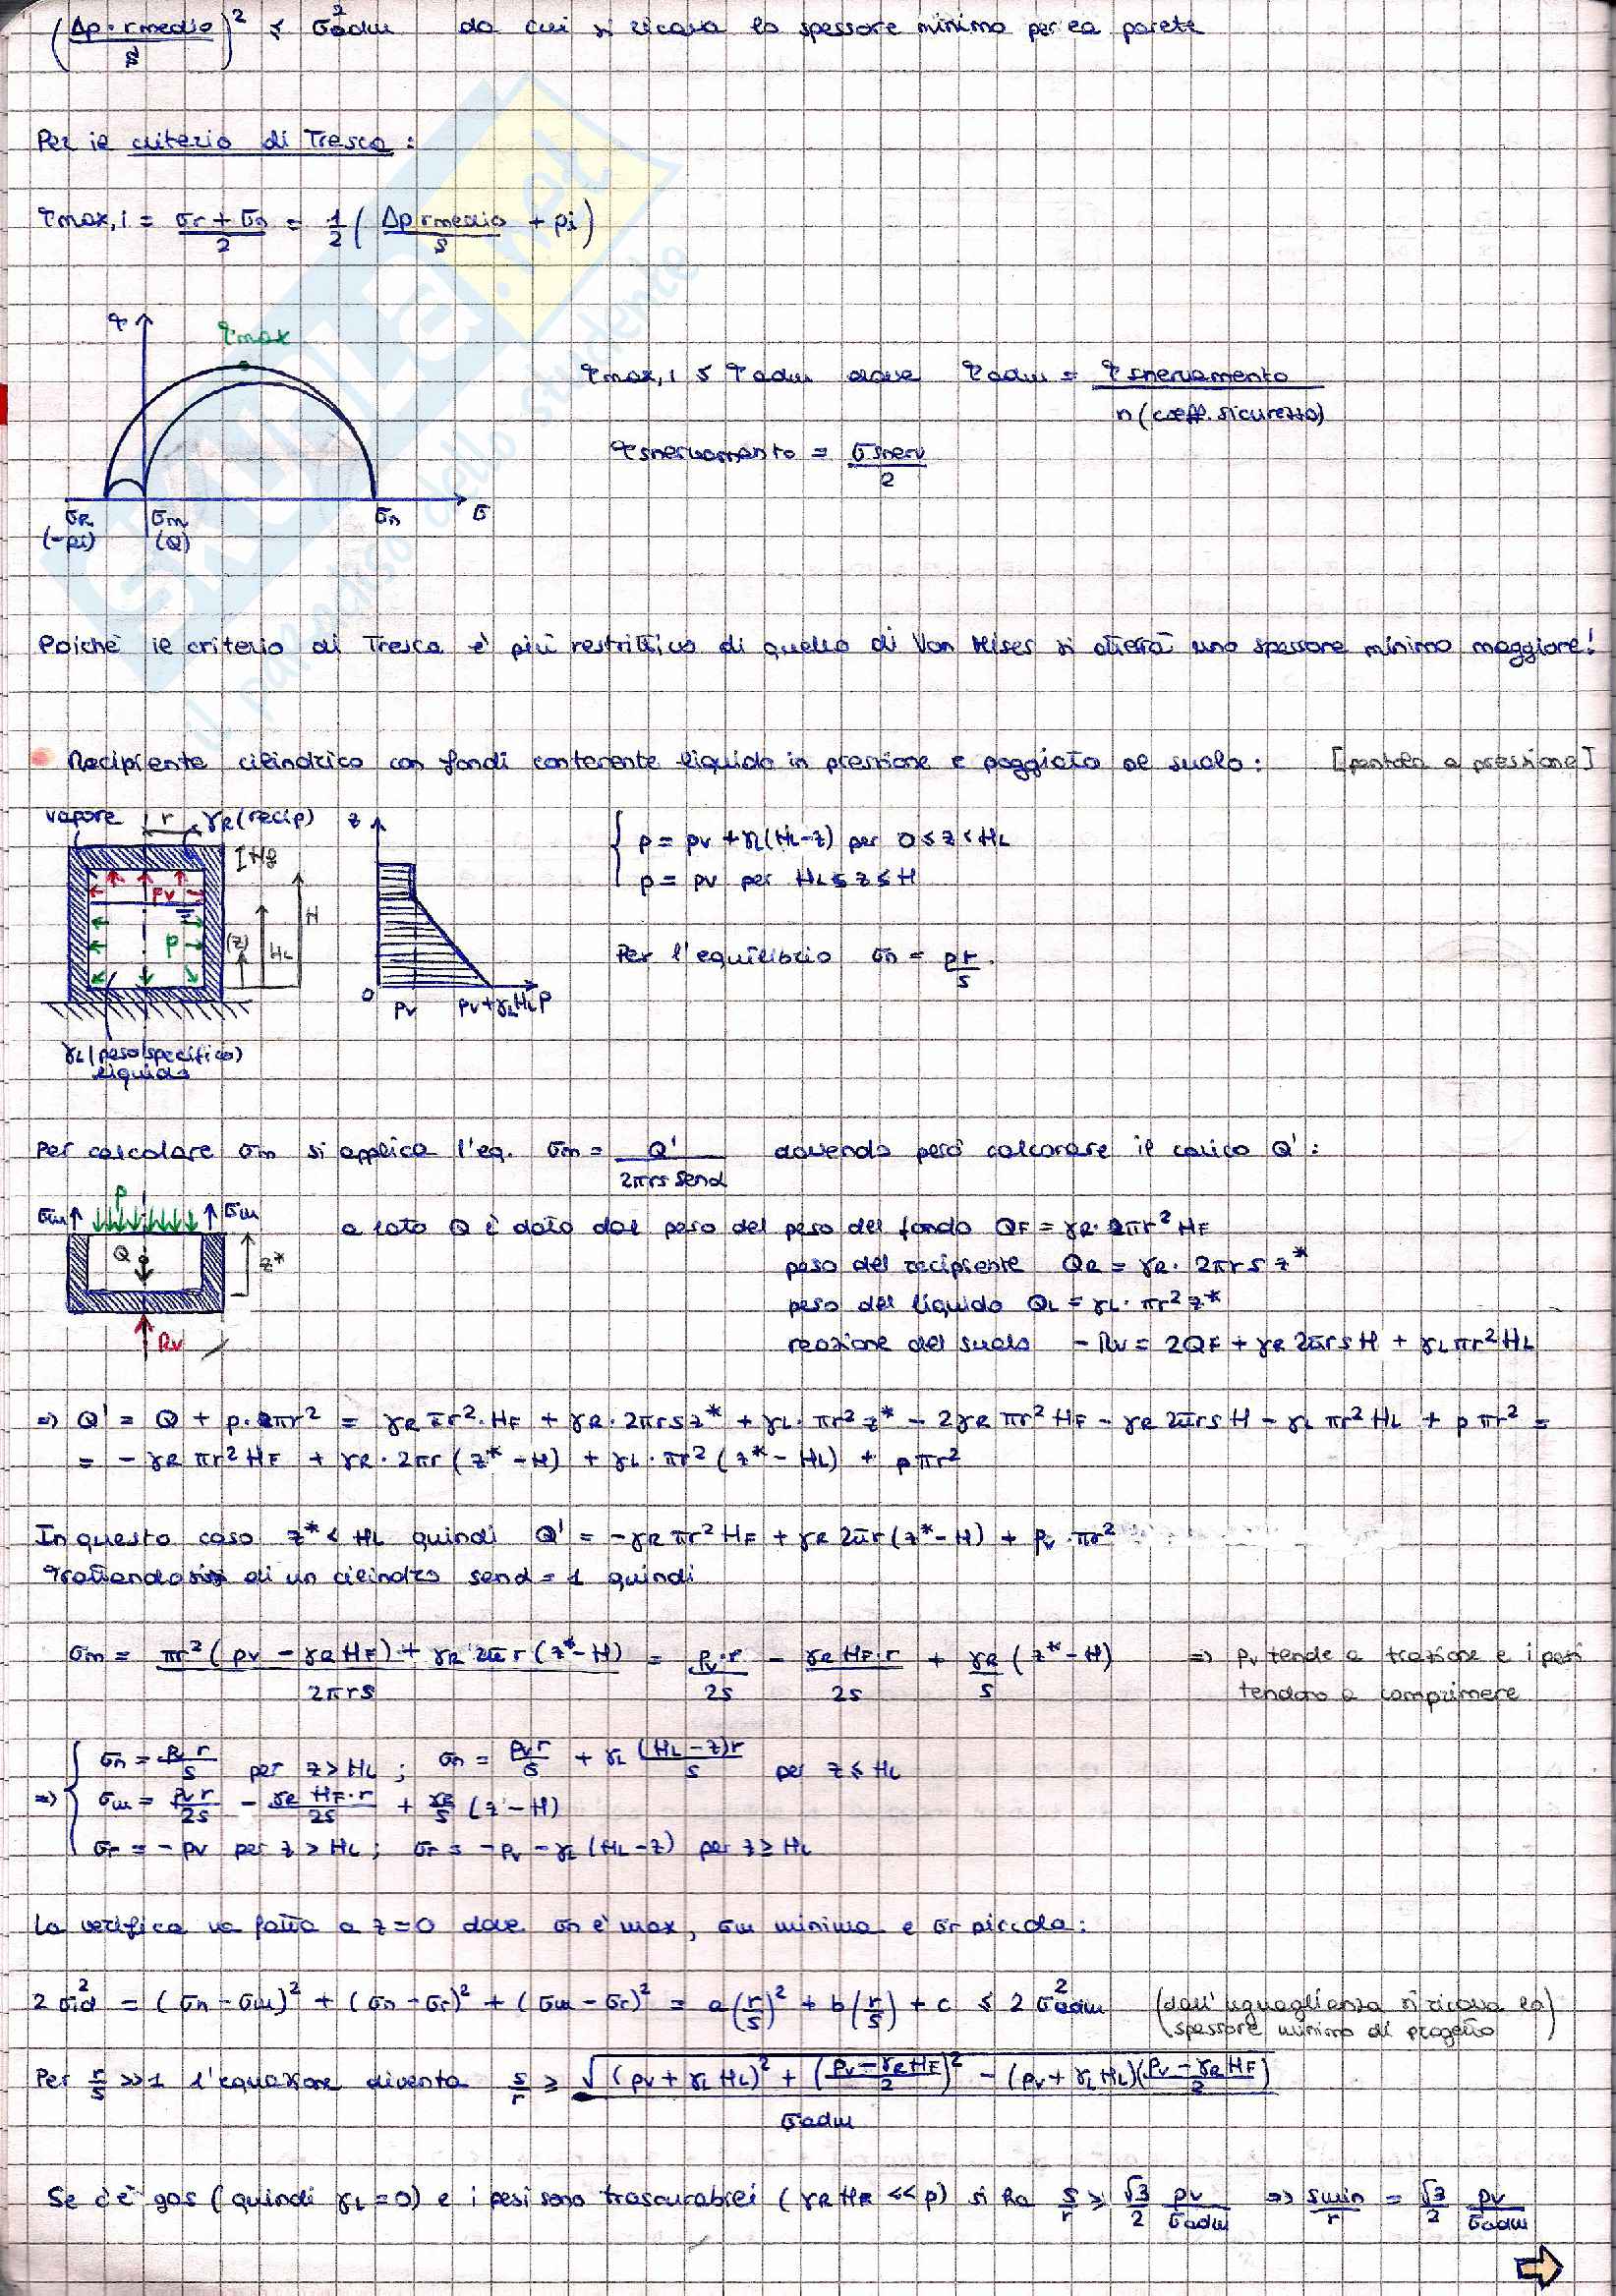 (Δp · rmedio / s)² ≤ σ²adm da cui si ricava lo spessore minimo per la parete
Per il criterio di Tresca :
τmax,i = (σr + σn)/2 = 1/2 ( Δp rmedio / s + pi )
τ
τmax
σR (-pi) σm (Q) σn σ
τmax,i ≤ τadm dove τadm = τsnervamento / n (coeff. sicurezza)
τsnervamento = σsnerv / 2
Poiché il criterio di Tresca è più restrittivo di quello di Von Mises si otterrà uno spessore minimo maggiore!
Recipiente cilindrico con fondi contenente liquido in pressione e poggiato al suolo: [pentola a pressione]
vapore r γR (recip) z
Hf
pv
p (z) HL H
0 pv pv+γLHL p
γL (peso specifico) liquido
p = pv + γL(HL-z) per 0 ≤ z < HL
p = pv per HL ≤ z ≤ H
Per l'equilibrio σn = pr/s.
Per calcolare σm si applica l'eq. σm = Q' / 2πrs senα dovendo però calcolare il carico Q' :
σm p σm
Q z*
Rv
a lato Q è dato dal peso del peso del fondo QF = γR · πr² HF
peso del recipiente QR = γR · 2πrs z*
peso del liquido QL = γL · πr² z*
reazione del suolo - Rv = 2QF + γR 2πrs H + γL πr² HL
⇒ Q' = Q + p · πr² = γR πr² · HF + γR · 2πrs z* + γL · πr² z* - 2γR πr² HF - γR 2πrs H - γL πr² HL + p πr² =
= - γR πr² HF + γR · 2πr (z* - H) + γL · πr² (z* - HL) + pπr²
In questo caso z* < HL quindi Q' = -γR πr² HF + γR 2πr (z* - H) + pv · πr²
Trattandosi di un cilindro senα = 1 quindi
σm = [πr² (pv - γR HF) + γR 2π r (z* - H)] / 2πrs = pv·r/2s - γR HF·r/2s + γR/s (z* - H) ⇒ pv tende a trazione e i pesi
tendono a comprimere
⇒ { σn = pv r/s per z > HL ; σn = pv r/s + γL (HL - z)r/s per z ≤ HL
σm = pv r/2s - γR HF·r/2s + γR/s (z - H)
σr = - pv per z > HL ; σr = -pv - γL (HL - z) per z ≥ HL
La verifica va fatta a z = 0 dove σn è max, σm minima e σr piccola :
2 σ²id = (σn - σm)² + (σn - σr)² + (σm - σr)² = a(r/s)² + b(r/s) + c ≤ 2 σ²adm (dall'uguaglianza si ricava lo spessore minimo di progetto)
Per r/s >> 1 l'equazione diventa s/r ≥ √[(pv + γL HL)² + ((pv - γR HF)/2)² - (pv + γL HL)((pv - γR HF)/2)] / σadm
Se c'è gas (quindi γL = 0) e i pesi sono trascurabili (γR HF << p) si ha s/r ≥ √3/2 pv/σadm ⇒ smin/r = √3/2 pv/σadm
SKUOLA.net
il paradiso dello studente